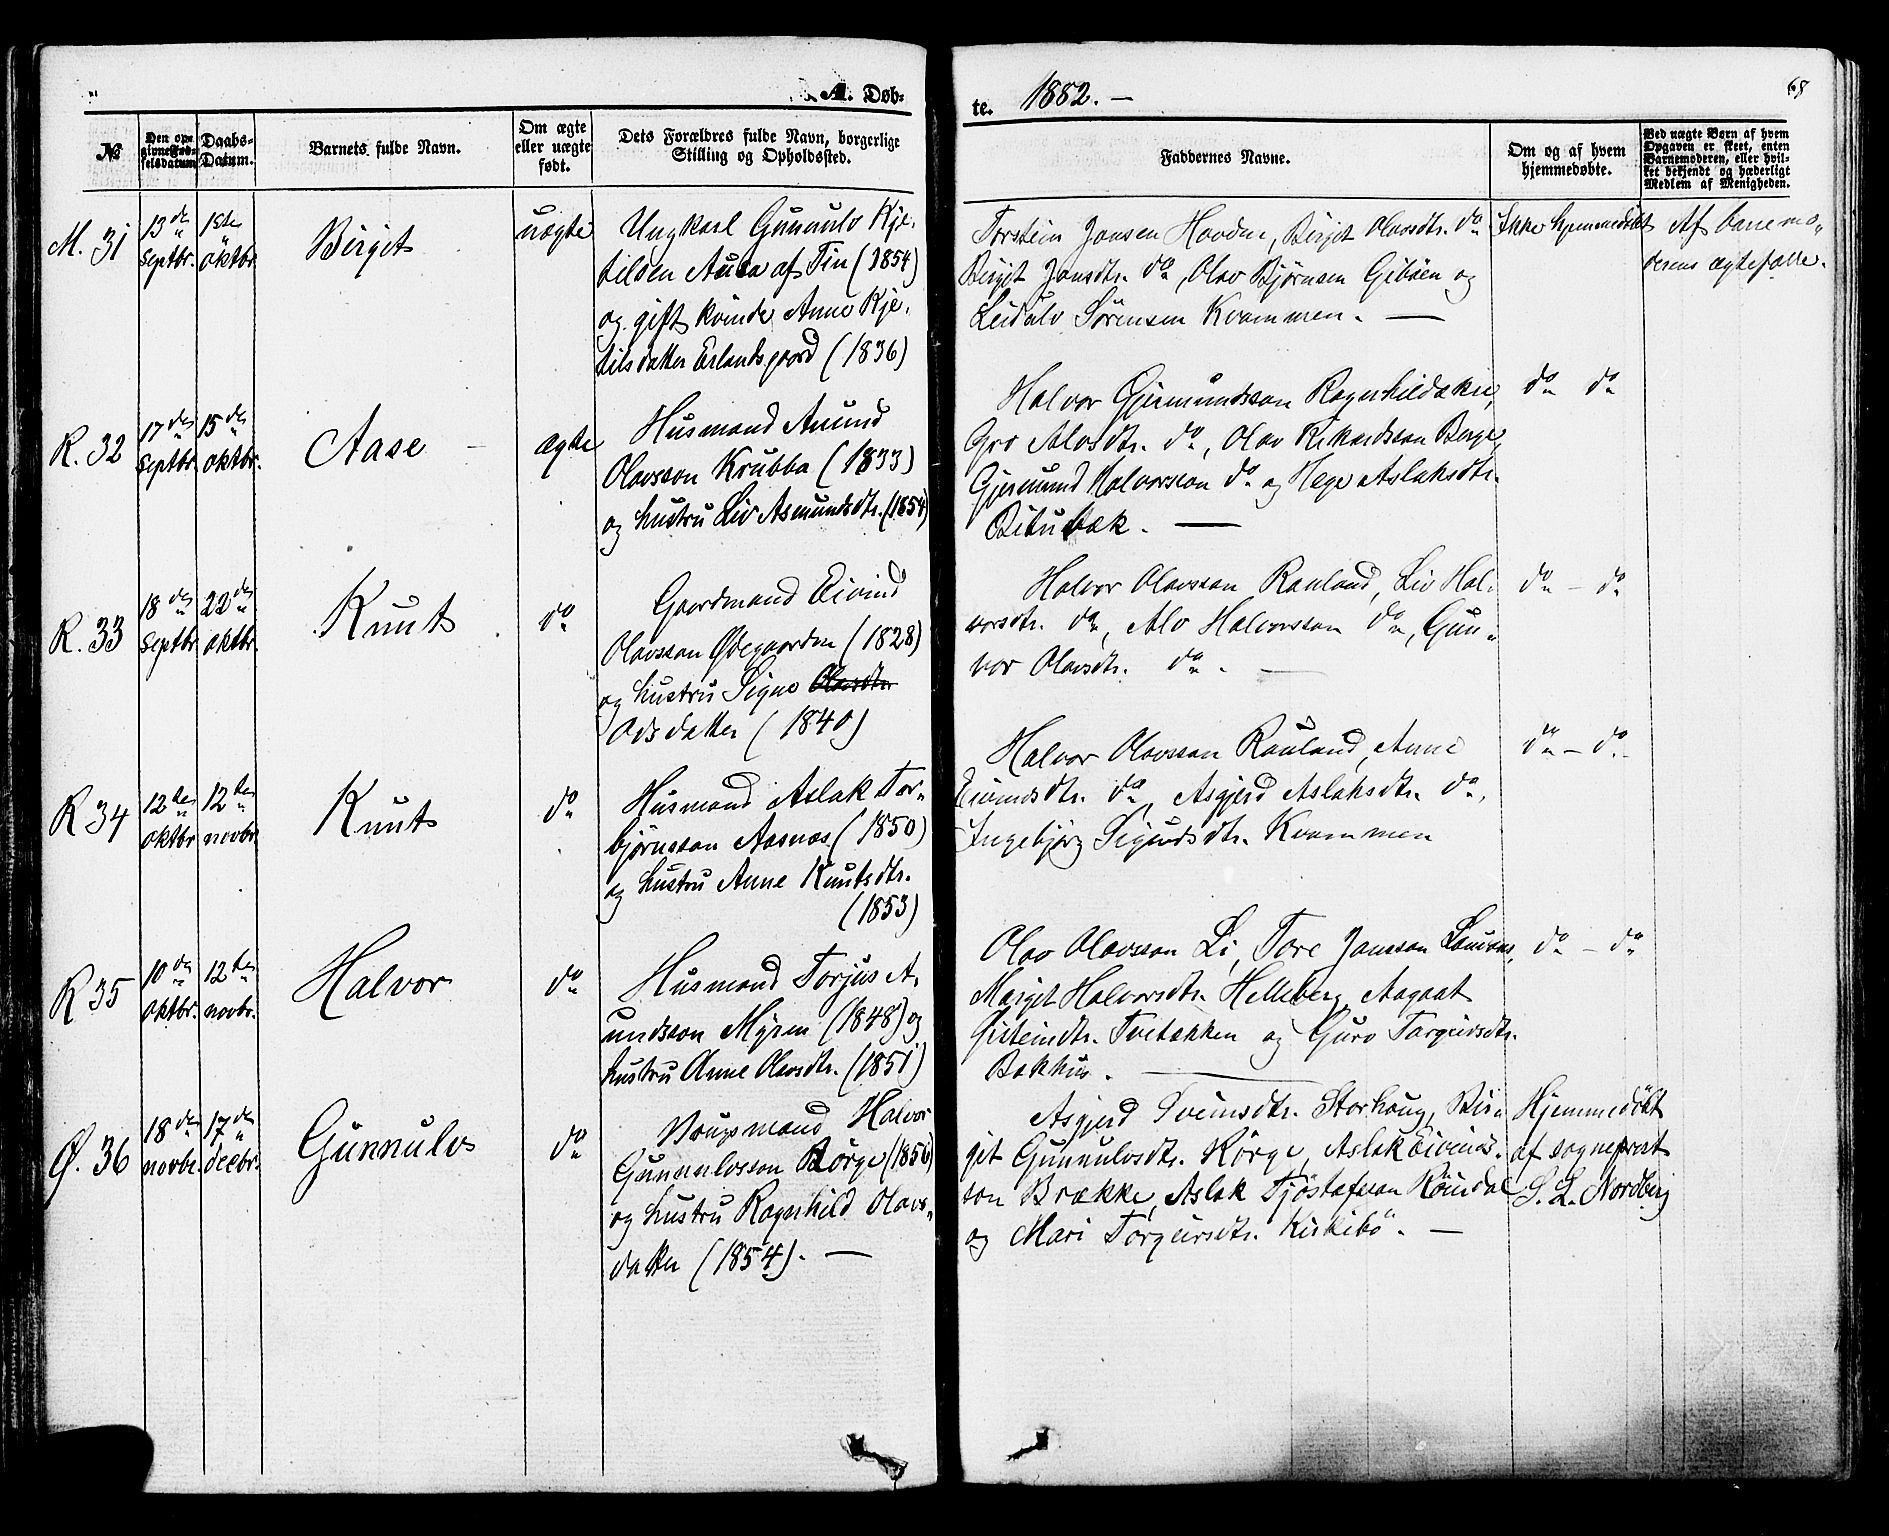 A. Døb-
te. 1882. —
68
№
Den op-
givne Fød-
selsdatum
Daabs-
Datum.
Barnets fulde Navn.
Om ægte
eller uægte
født.
Dets Forældres fulde Navn, borgerlige
Stilling og Opholdssted.
Faddernes Navne.
Om og af hvem
hjemmedøbte.
Ved uægte Børn af hvem
Opgaven er skeet, enten
Barnemoderen, eller hvil-
ket bekjendt og hæderligt
Medlem af Menigheden.
M. 31
13de
septbr.
1ste
oktbr.
Birgit
uægte
Ungkarl Gunnulv Kje-
tilsen af Tin (1854)
og gift kvinde Anne Kje-
tilsdatter Erlandsgaard (1836)
Torstein Jonsen Hovden, Birgit Olavsdtr. do
Birgit Jonsdtr. do, Olav Bjørnsen Gibøen og
Leidulv Sørensen Kvammen. —
Ikke hjemmedøbt
Af barnemo-
derens ægtefælle.
R. 32
17de
septbr.
15de
oktbr.
Aase
ægte
Husmand Anund
Olavsson Krubba (1833)
og hustru Liv Asmundsdtr. (1854)
Halvor Gjermundsson
Gro Alvsdtr. do, Olav Rikardsson Berge,
Gjermund Halvorsson do og Hege Aslaksdtr.
Bitubæk. —
do do
R. 33
18de
septbr.
22de
oktbr.
Knut
do
Gaardmand Eivind
Olavsson Ødegaarden (1828)
og hustru Signe Olavsdtr.
Odsdatter (1840)
Halvor Olavsson Rauland, Liv Hal-
vorsdtr. do, Alv Halvorsson do, Gun-
vor Olavsdtr. do. —
do — do
R 34
12te
oktbr
12te
novbr.
Knut
do
Husmand Aslak Tor-
bjørnsson Aasnæs (1850)
og hustru Anne Knutsdtr.
(1853)
Halvor Olavsson Rauland, Anne
Eivindsdtr. do, Asgjerd Aslaksdtr. do,
Ingebjørg Sigurdsdtr. Kvammen
do — do
R 35
10de
oktbr.
12te
novbr.
Halvor
do
Husmand Torjus A-
undsson Myren (1848) og
hustru Anne Olavsdtr. (1851)
Olav Olavsson Li, Tore Jonsson
Marget Halvorsdtr. Helleberg, Aagaat
Østeinsdtr. Tvetakken og Guro Targeirsdtr.
Bakhus. —
do — do
Ø. 36
18de
novbr.
17de
decbr.
Gunnulv
do
Halvor
Gunnulvsson Børge (1856)
og hustru Ragnhild Olavs-
datter (1854). —
Asgjerd Sveinsdtr. Storhaug, Bir-
git Gunnulvsdtr. Kørge, Aslak Eivinds-
son Brække, Aslak Tjöstafsson Röindal
og Mari Torgeirsdtr. Kirkibö. —
Hjemmedøbt
af sogneprest
S. L. Nordberg